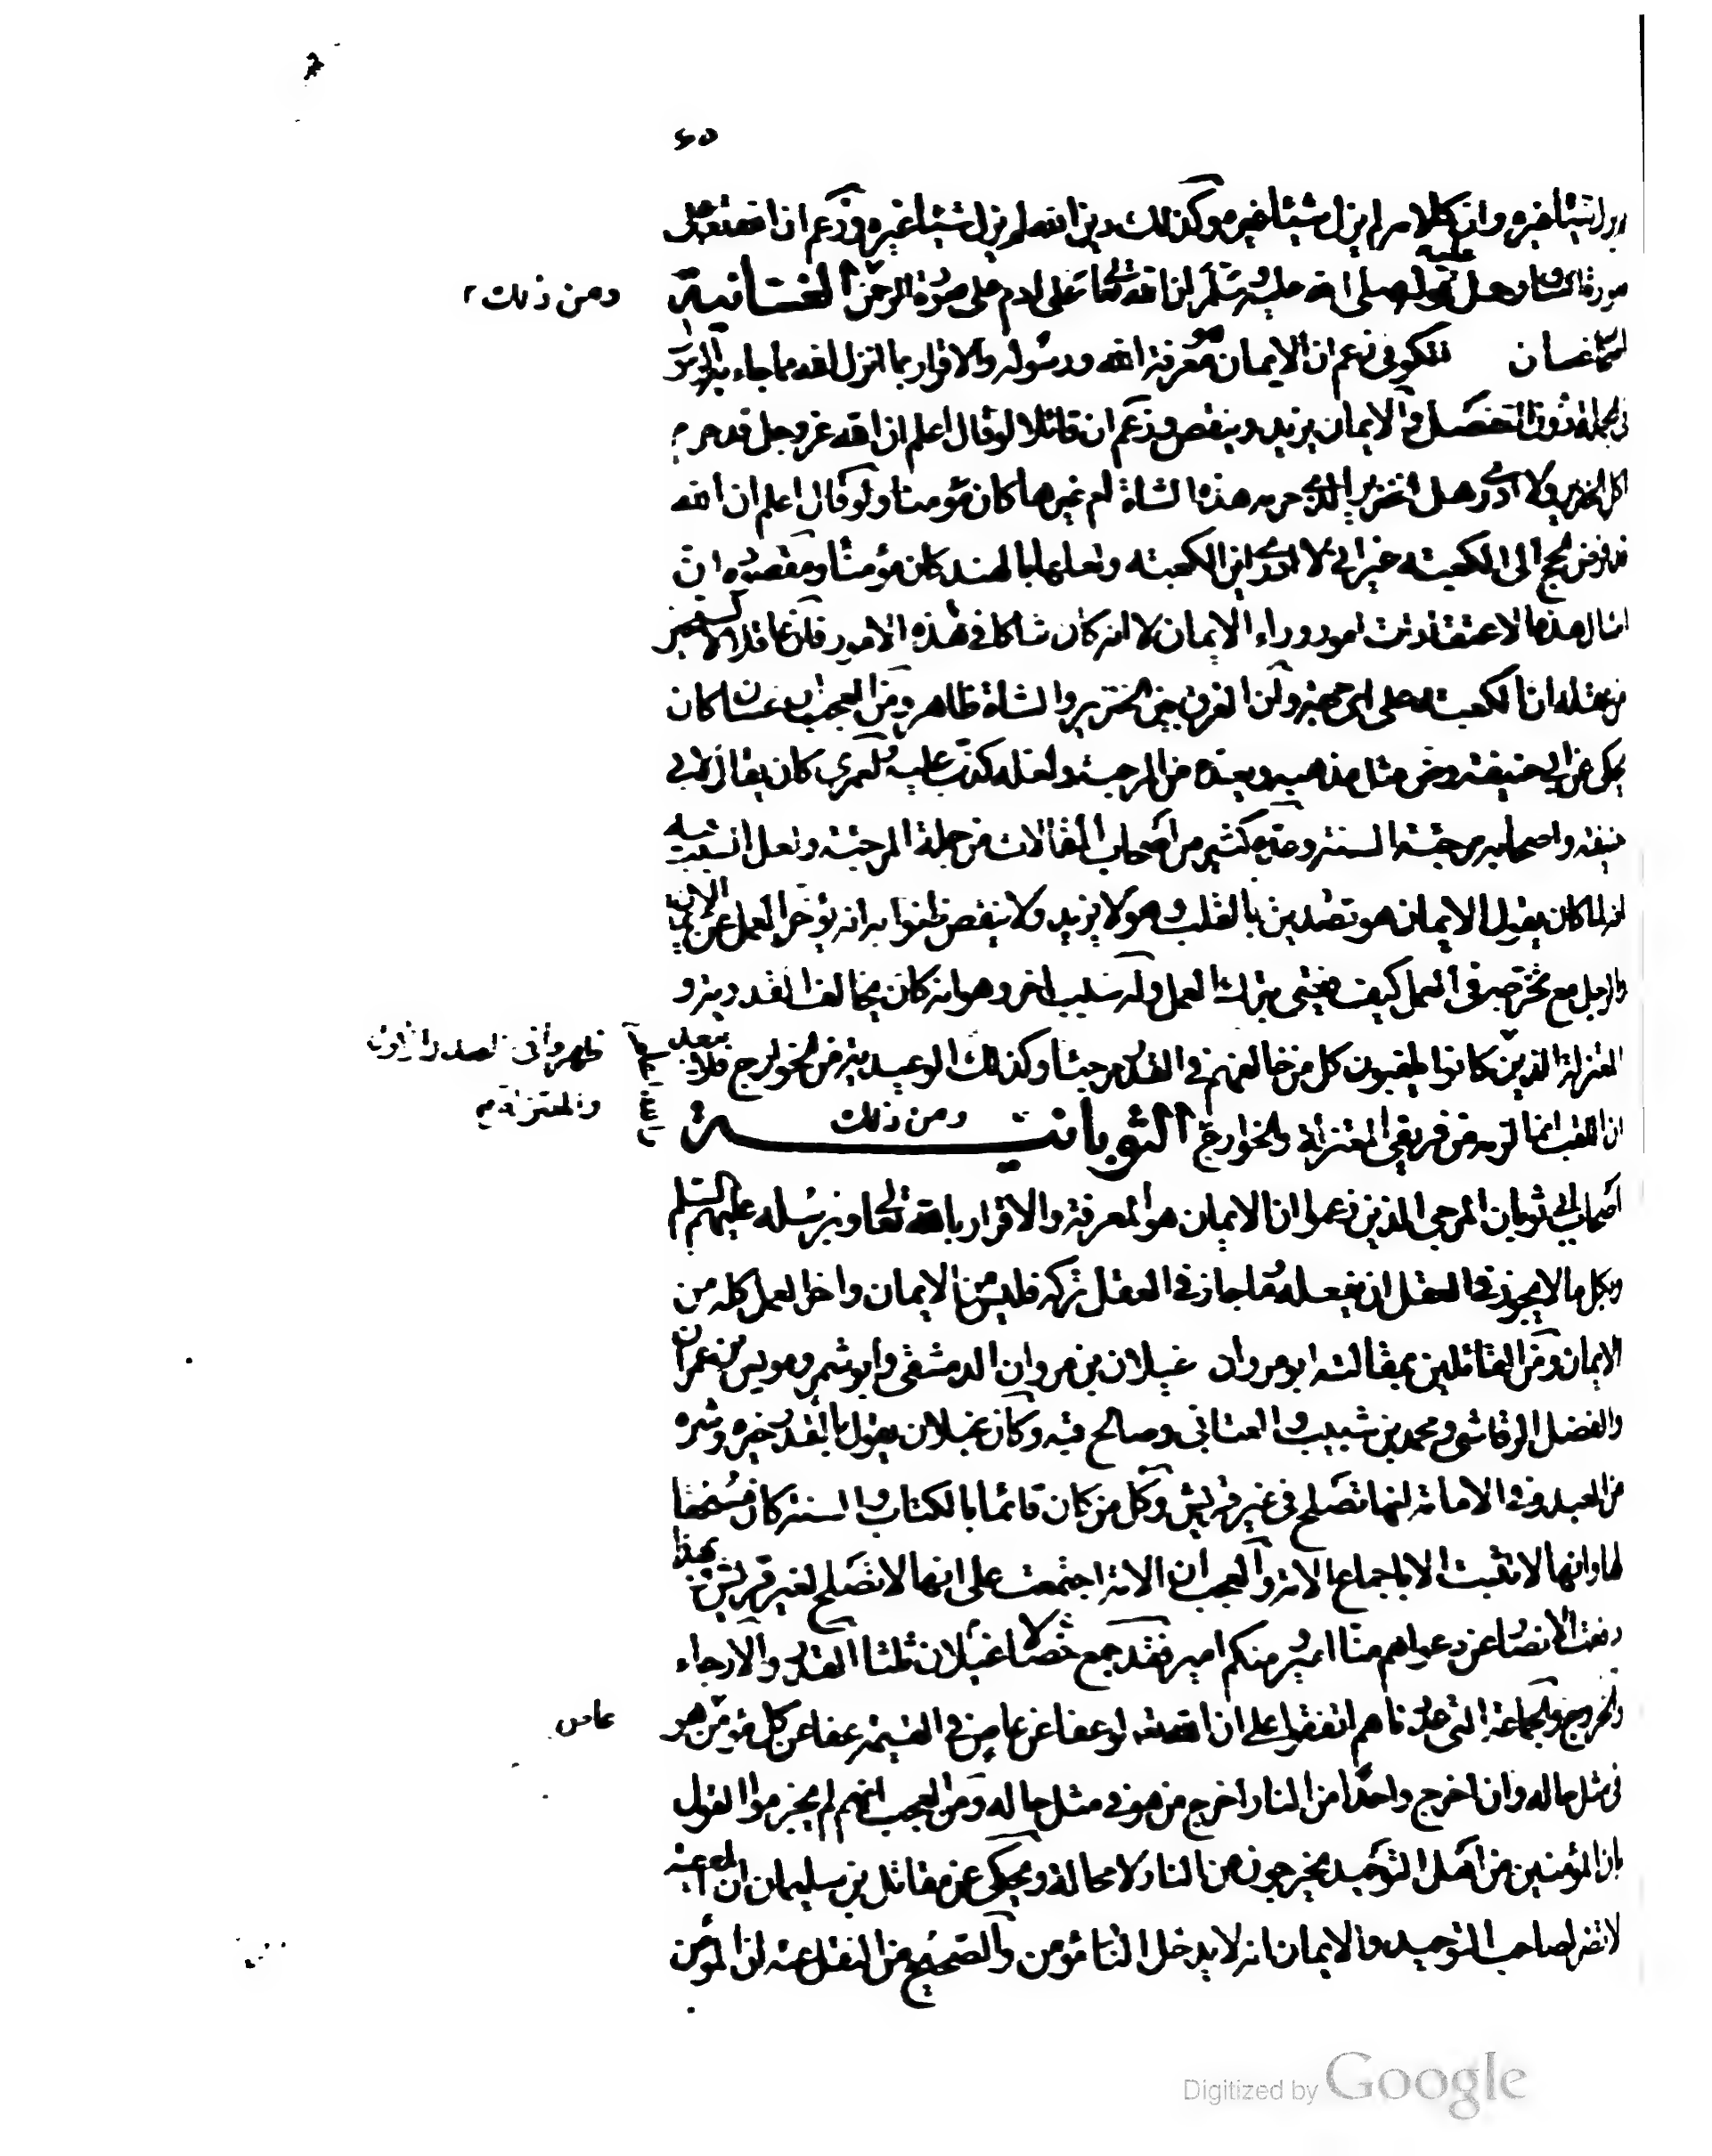 ٦٥
يزل شيئا غيره وان كلامه لم يزل شيئا غيره وكذلك دين الله لم يزل شيئا غيره وزعم ان الله تعالى
صورة انسان وحمل عليه قوله صلى الله عليه وسلم ان الله تعالى خلق ادم على صورة الرحمن الغسانية
ومن ذلك
اصحاب غسان الكوفي زعم ان الايمان هو معرفة الله ورسوله والاقرار بما انزل الله مما جاء به الرسول
في الجملة دون التفصيل والايمان يزيد وينقص وزعم ان قائلا لو قال اعلم ان الله عز وجل قد حرم
اكل الخنزير ولا ادري هل الخنزير الذي حرمه هذه الشاة ام غيرها كان مؤمنا ولو قال اعلم ان الله
قد فرض الحج الى الكعبة غير اني لا ادري اين الكعبة ولعلها بالهند كان مؤمنا ومقصوده ان
امثال هذه الاعتقادات امور وراء الايمان لا انه كان شاكا في هذه الامور فان عاقلا لا يستجيز
من عقله ان الكعبة على اي جهة وان الفرق بين الخنزير والشاة ظاهر ومن العجب ان غسان كان
يحكي عن ابي حنيفة رضي مثل مذهبه ويعده من المرجئة ولعله كذب عليه ولعمري كان يقال لابي
حنيفة واصحابه مرجئة السنة وعده كثير من اصحاب المقالات من جملة المرجئة ولعل السبب فيه
انه لما كان يقول الايمان هو تصديق بالقلب وهو لا يزيد ولا ينقص ظنوا به انه يؤخر العمل عن الايمان
والرجل مع تحرجه في العمل كيف يفتي بترك العمل وله سبب اخر وهو انه كان يخالف القدرية و
المعتزلة الذين كانوا يلقبون كل من خالفهم في القدر مرجئا وكذلك الوعيدية من الخوارج فلا يبعد
ظهروا في الصدر الاول
والمعتزلة
ان اللقب انما لزمه من فريقي المعتزلة والخوارج ومن ذلك الثوبانية
اصحاب ابي ثوبان المرجي الذين زعموا ان الايمان هو المعرفة والاقرار بالله تعالى وبرسله عليهم السلم
وبكل ما لا يجوز في العقل ان يفعله وما جاز في العقل تركه فليس من الايمان واخر العمل كله من
الايمان ومن القائلين بمقالته ابو مروان غيلان بن مروان الدمشقي وابو شمر ومويس بن عمران
والفضل الرقاشي ومحمد بن شبيب والعتابي وصالح قبه وكان غيلان يقول بالقدر خيره وشره
من العبد وفي الامامة انها تصلح في غير قريش وكل من كان قائما بالكتاب والسنة كان مستحقا
لها وانها لا تثبت الا باجماع الامة والعجب ان الامة اجتمعت على انها لا تصلح لغير قريش وبهذا
دفعت الانصار عن دعواهم منا امير ومنكم امير فقد جمع غيلان خصالا ثلثا القدر والارجاء
والخروج والجماعة التي عددناهم اتفقوا على ان الله تعالى لو عفا عن عاص في القيمة عفا عن كل مؤمن هو
عاص
في مثل حاله وان اخرج واحدا من النار اخرج من هو في مثل حاله ومن العجب انهم لم يجزموا القول
بان المؤمنين من اهل التوحيد يخرجون من النار لا محالة ويحكى عن مقاتل بن سليمان ان المعصية
لا تضر صاحب التوحيد والايمان انه لا يدخل النار مؤمن والصحيح من النقل عنه ان المؤمن
Digitized by Google